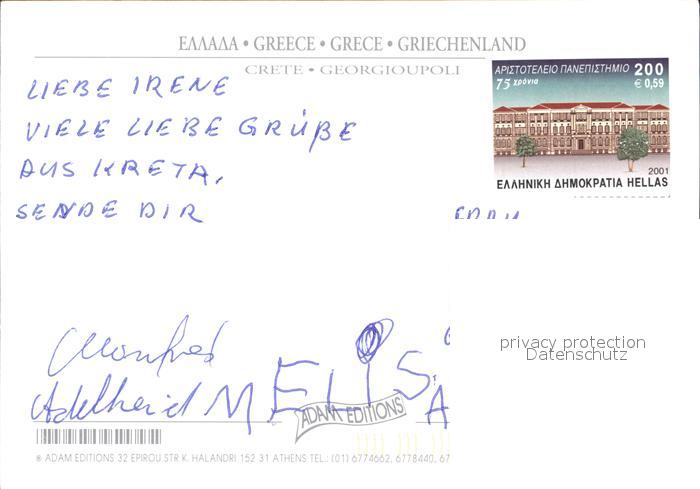 ΕΛΛΑΔΑ • GREECE • GRECE • GRIECHENLAND
CRETE • GEORGIOUPOLI
ΑΡΙΣΤΟΤΕΛΕΙΟ ΠΑΝΕΠΙΣΤΗΜΙΟ 200
75 χρόνια € 0,59
2001
ΕΛΛΗΝΙΚΗ ΔΗΜΟΚΡΑΤΙΑ HELLAS
LIEBE IRENE
VIELE LIEBE GRÜßE
AUS KRETA,
SENDE DIR
FRAU
privacy protection
Datenschutz
Manfred
Adelheid MELIS
A
ADAM EDITIONS
® ADAM EDITIONS 32 EPIROU STR K. HALANDRI 152 31 ATHENS TEL.: (01) 6774662, 6778440, 67